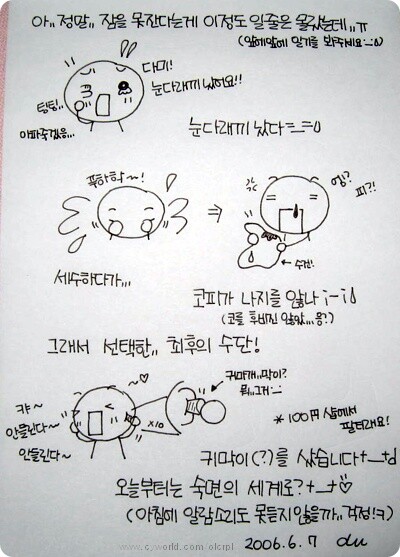 아,, 정말,, 잠을 못잔다는게 이정도 일줄은 몰랐는데,,ㅠ
(앞에앞에 일기를 봐주세요
다미!
눈다래끼 났어요!!
팅팅..
아파죽겠음...
눈다래끼 났다
푸하학~!
엥?
피?!
수건!
세수하다가,,,
코피가 나지를 않나
(코를 후비진 않았...응?)
그래서 선택한,, 최후의 수단!
~♡
귀마개,,막이?
뭐,,그거
캬~
안들린다~
안들린다~
x10
*100円 샵에서
팔더래요!
귀막이(?)를 샀습니다+_+
오늘부터는 숙면의 세계로?+_+♡
(아침에 알람소리도 못듣지않을까,,걱정!ㅋ)
2006.6.7
www.cyworld.com/olcrpl